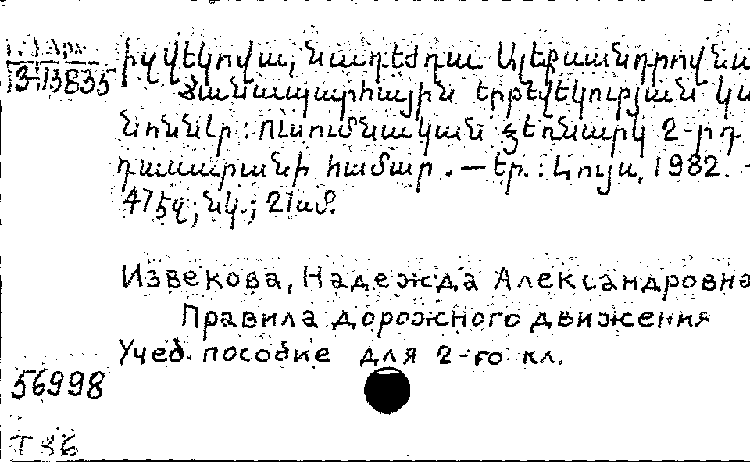 Իզվեկովա, Նադեժդա Ալեքսանդրովնա
13-13835
Ճանապարհային երթևեկության կա
նոններ: Ուսումնական ձեռնարկ 2-րդ
դասարանի համար. — Եր.: Լույս, 1982. -
47 էջ; նկ.; 21սմ.
Извекова, Надежда Александровна
Правила дорожного движения
Учеб. пособие для 2-го кл.
56998